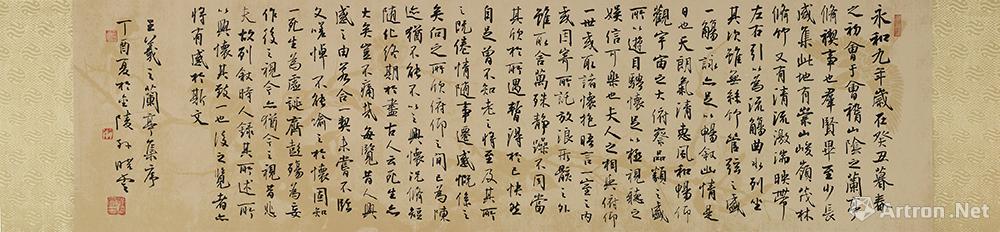 永和九年歲在癸丑暮春
之初會于會稽山陰之蘭亭
脩禊事也羣賢畢至少長
咸集此地有崇山峻嶺茂林
脩竹又有清流激湍映帶
左右引以為流觴曲水列坐
其次雖無絲竹管弦之盛
一觴一詠亦足以暢敘幽情是
日也天朗氣清惠風和暢仰
觀宇宙之大俯察品類之盛
所以遊目騁懷足以極視聽之
娛信可樂也夫人之相與俯仰
一世或取諸懷抱晤言一室之內
或因寄所託放浪形骸之外
雖取舍萬殊靜躁不同當
其欣於所遇暫得於己快然
自足曾不知老之將至及其所
之既倦情隨事遷感慨係之
矣向之所欣俯仰之間已為陳
迹猶不能不以之興懷況脩短
隨化終期於盡古人云死生亦
大矣豈不痛哉每覽昔人興
感之由若合一契未嘗不臨
文嗟悼不能喻之於懷固知
一死生為虛誕齊彭殤為妄
作後之視今亦猶今之視昔悲
夫故列敘時人錄其所述所
以興懷其致一也後之覽者亦
將有感於斯文
王羲之蘭亭集序
丁酉夏於金陵 孫曉雲
Artron.Net